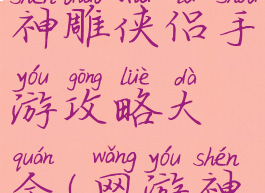 shén diāo xiá lǚ shǒu
神雕侠侣手
yóu gōng lüè dà
游攻略大
quán wǎng yóu shén
全(网游神